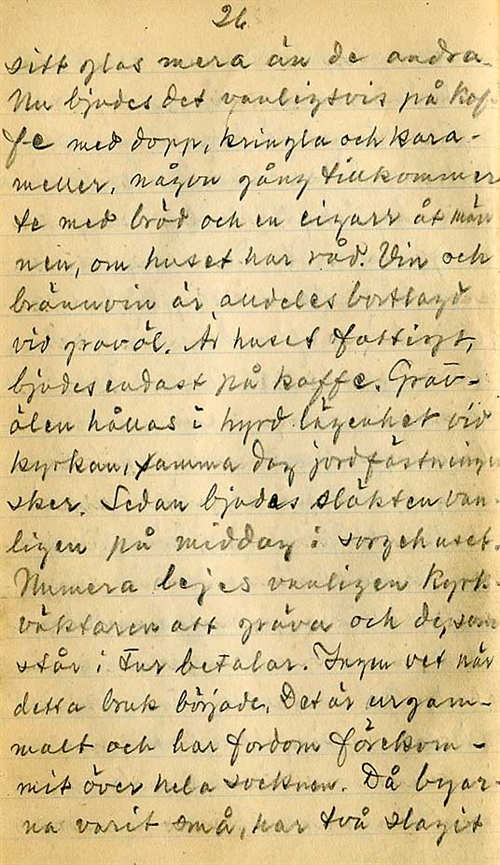 26
sitt glas mera än de andra.
Nu bjudes det vanligtvis på kof-
fe med dopp, kringla och kara-
meller, någon gång tillkommer
te med bröd och en cigarr åt män
nen, om huset har råd. Vin och
brännvin är andeles bortlagd
vid gravöl. Är huset fattigt,
bjudes endast på kaffe. Grav-
ölen hållas i hyrd lägenhet vid
kyrkan, samma dag jordfästningen
sker. Sedan bjudas släkten van-
ligen på middag i sorgehuset.
Numera lejes vanligen kyrk-
väktaren att gräva och de, som
står i tur betalar. Ingen vet när
detta bruk började. Det är urgam-
malt och har fordom förekom-
mit över hela socknen. Då byar-
na varit små, har två slagit